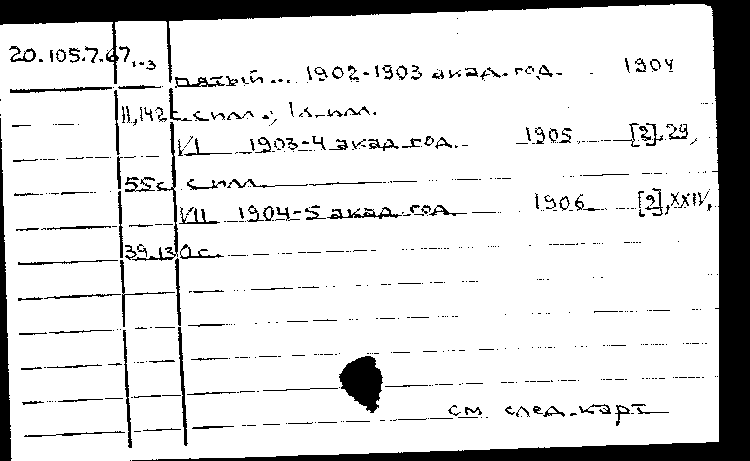 20.105.7.67,1-3
пятый... 1902-1903 акад. год. 1904
II,142 с. с илл.; 1 л. илл.
VI 1903-4 акад. год. 1905 [2],29,
55с. с илл.
VII 1904-5 акад. год. 1906. [2],XXIV,
39.130с.
см след. карт